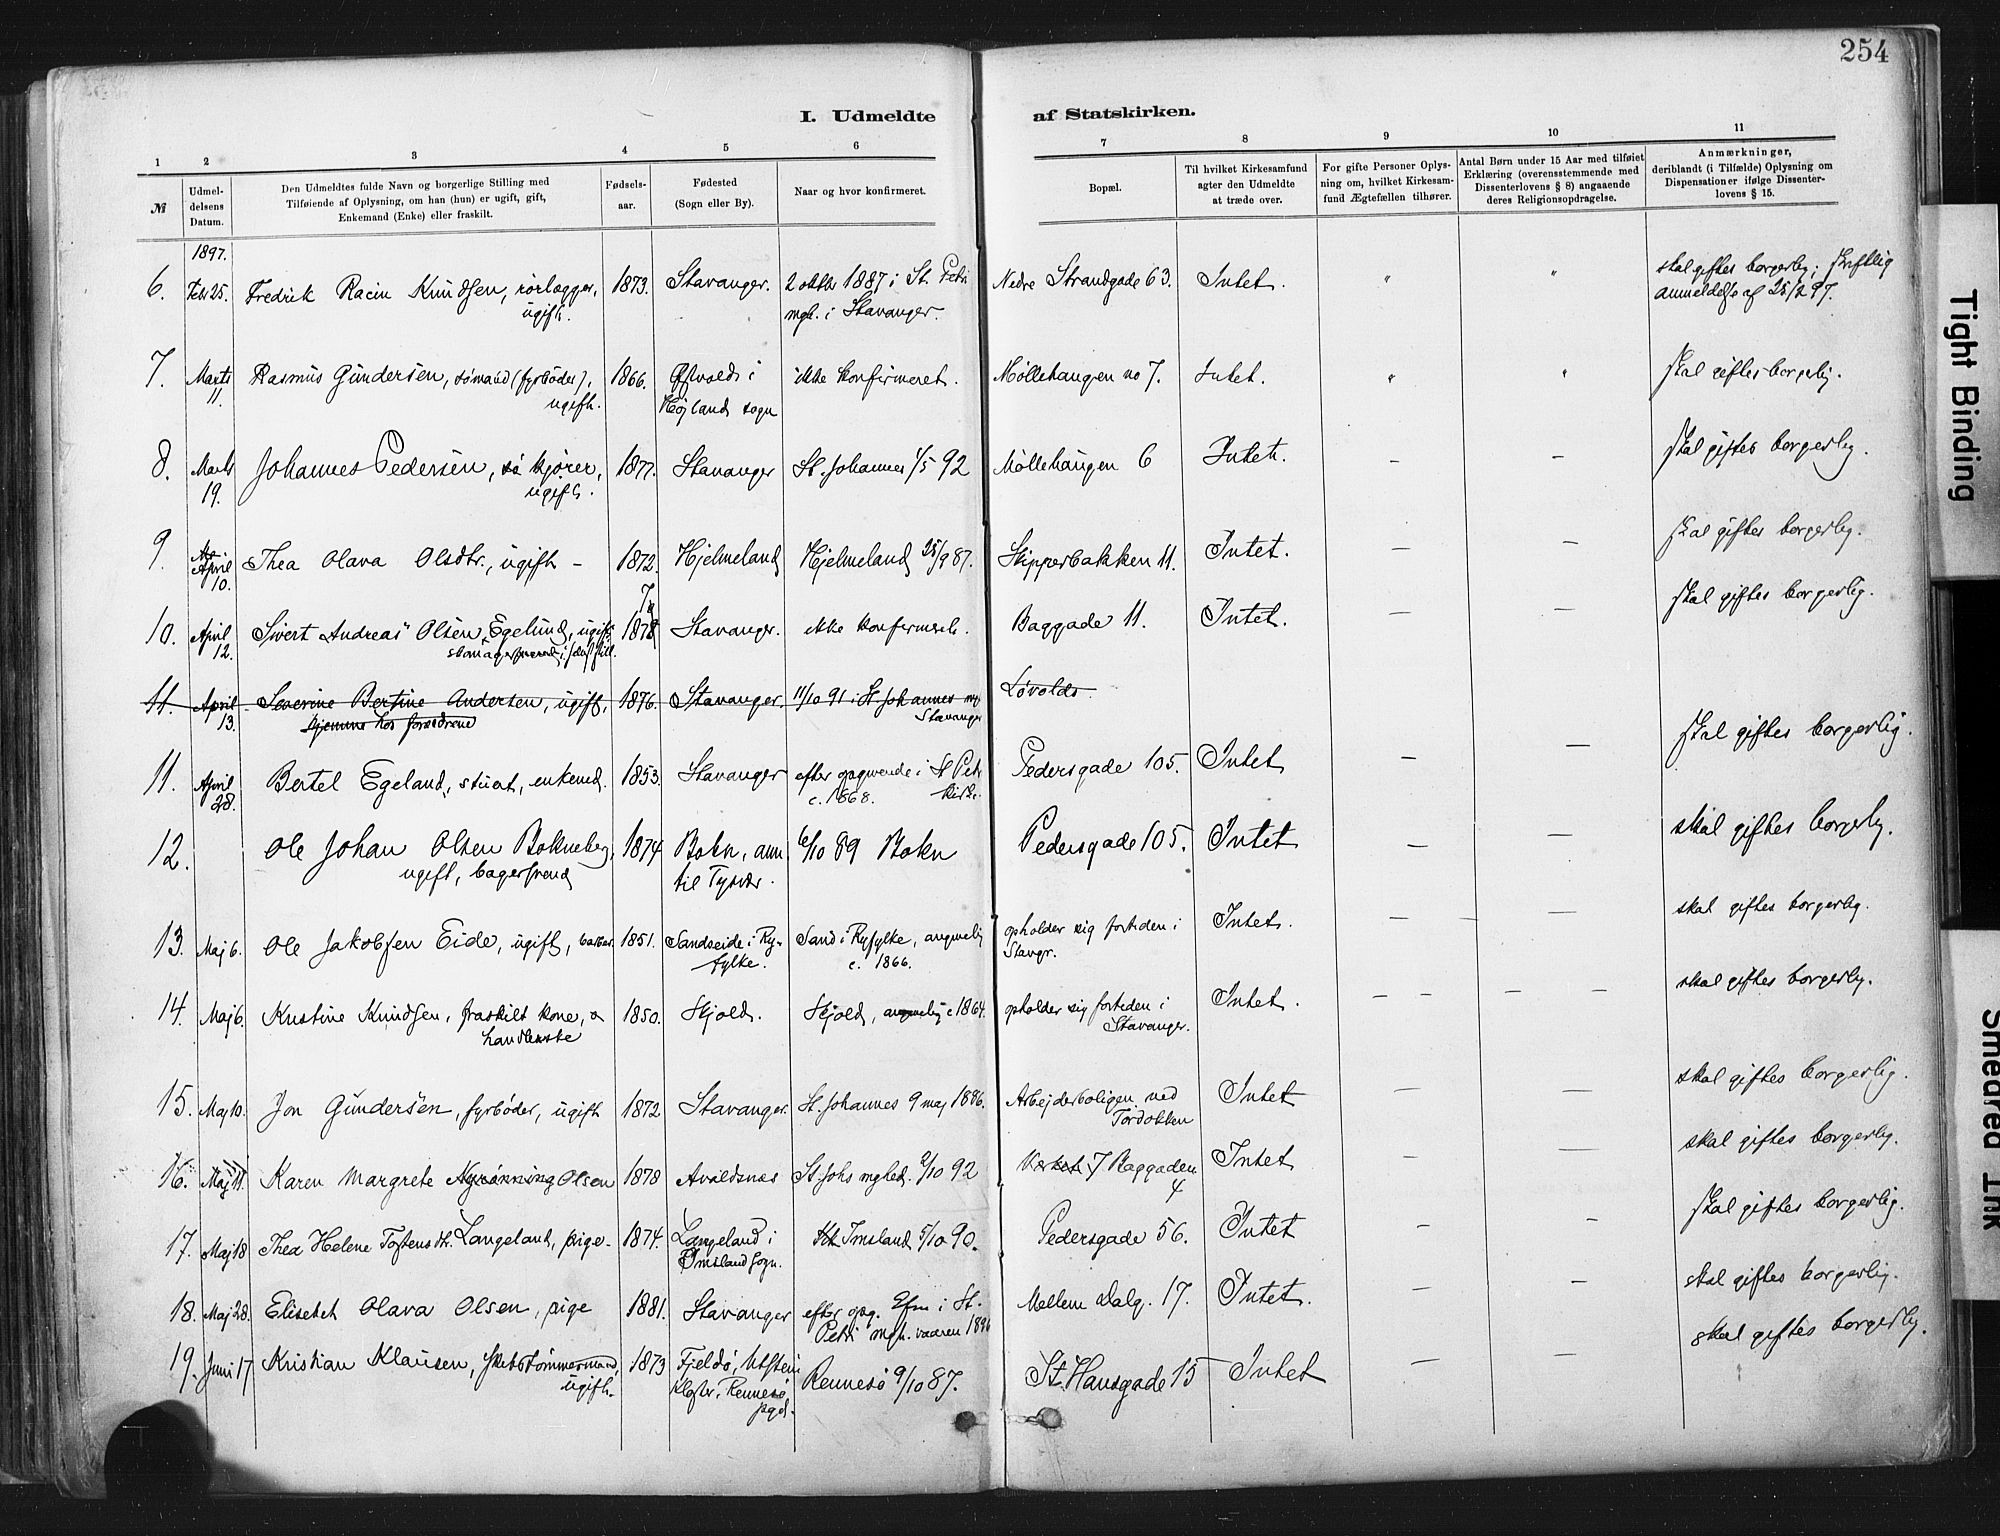 254
I. Udmeldte af Statskirken.
1 2 3 4 5 6 7 8 9 10 11
№
Udmeldelsens Datum.
Den Udmeldtes fulde Navn og borgerlige Stilling med
Tilføiende af Oplysning, om han (hun) er ugift, gift,
Enkemand (Enke) eller fraskilt.
Fødselsaar.
Fødested
(Sogn eller By).
Naar og hvor konfirmeret.
Bopæl.
Til hvilket Kirkesamfund
agter den Udmeldte
at træde over.
For gifte Personer Oplysning om, hvilket Kirkesamfund Ægtefællen tilhører.
Antal Børn under 15 Aar med tilføiet
Erklæring (overensstemmende med
Dissenterlovens § 8) angaaende
deres Religionsopdragelse.
Anmærkninger,
deriblandt (i Tilfælde) Oplysning om
Dispensationer ifølge Dissenterlovens § 15.
1897.
6. Febr 25. Fredrik Racin Knudsen, rørlægger, ugift. 1873. Stavanger. 2 oktbr 1887 i St. Petri mgh. i Stavanger. Nedre Strandgade 63. Intet. " " skal giftes borgerlig; skriftlig anmeldelse af 25/2 97.
7. Marts 11. Rasmus Gundersen, sømand (fyrbøder), ugift. 1866. Østvold i Højland sogn ikke konfirmeret. Møllehaugen no 7. Intet. " " skal giftes borgerlig.
8. Marts 19. Johannes Pedersen, kjører, ugift. 1877. Stavanger St. Johannes 1/5 92 Møllehaugen 6 Intet. – – skal giftes borgerlig.
9. April 10. Thea Olava Olsdtr., ugift – 1872. Hjelmeland Hjelmeland 25/9 87. Skipperbakken 11. Intet. – – skal giftes borgerlig.
10. April 12. Sivert Andreas Olsen Egelund, ugift, 1878 Stavanger. ikke konfirmert. Baggade 11. Intet. – – skal giftes borgerlig.
11. April 13. Severine Bertine Andersen, ugift, hjemme hos forældrene 1876. Stavanger. 11/10 91 i St. Johannes mgh Stavanger Løvolds
11. April 28. Bertel Egeland, stuert, enkemd. 1853. Stavanger efter opgivende i St Petri kirke c. 1868. Pedersgade 105. Intet – – skal giftes borgerlig.
12. Ole Johan Olsen Bokneberg, ugift, bagersvend 1874 Bokn, ann. til Tysvær. 6/10 89 Bokn Pedersgade 105. Intet – – skal giftes borgerlig.
13. Maj 6. Ole Jakobsen Eide, ugift, 1851. Sandseide i Ryfylke. Sand i Ryfylke, angivelig c. 1866. opholder sig fortiden i Stavgr. Intet. – – – skal giftes borgerlig.
14. Maj 6. Kristine Knudsen, fraskilt kone, handlerske 1850. Skjold. Skjold, angivelig c 1864. opholder sig fortiden i Stavanger. Intet. – – – – skal giftes borgerlig.
15. Maj 10. Jon Gundersen, fyrbøder, ugift 1872 Stavanger. St. Johannes 9 maj 1886. Arbejderboligen ved Intet – – skal giftes borgerlig.
16. Maj 11. Karen Margrete Nyrønning Olsen 1878 Avaldsnæs St. Johs mghed. 2/10 92 Baggaden 4 Intet – – skal giftes borgerlig.
17. Maj 18 Thea Helene Tostensdt. Langeland, pige – 1874. Langeland i Imsland sogn. Imsland 5/10 90. Pedersgade 56. Intet – – skal giftes borgerlig.
18. Maj 28. Elisebet Olava Olsen, pige 1881. Stavanger efter opg. i St. Petri mgh. vaaren 1896 Mellem Dalg. 17. Intet. – – skal giftes borgerlig.
19. Juni 17 Kristian Klausen, skibstømmermand, ugift. 1873 Fjeldø, Utstein Kloster, Rennesø pgd. Rennesø 9/10 87. St. Hansgade 15 Intet – – skal giftes borgerlig.
Tight Binding
Smeared Ink